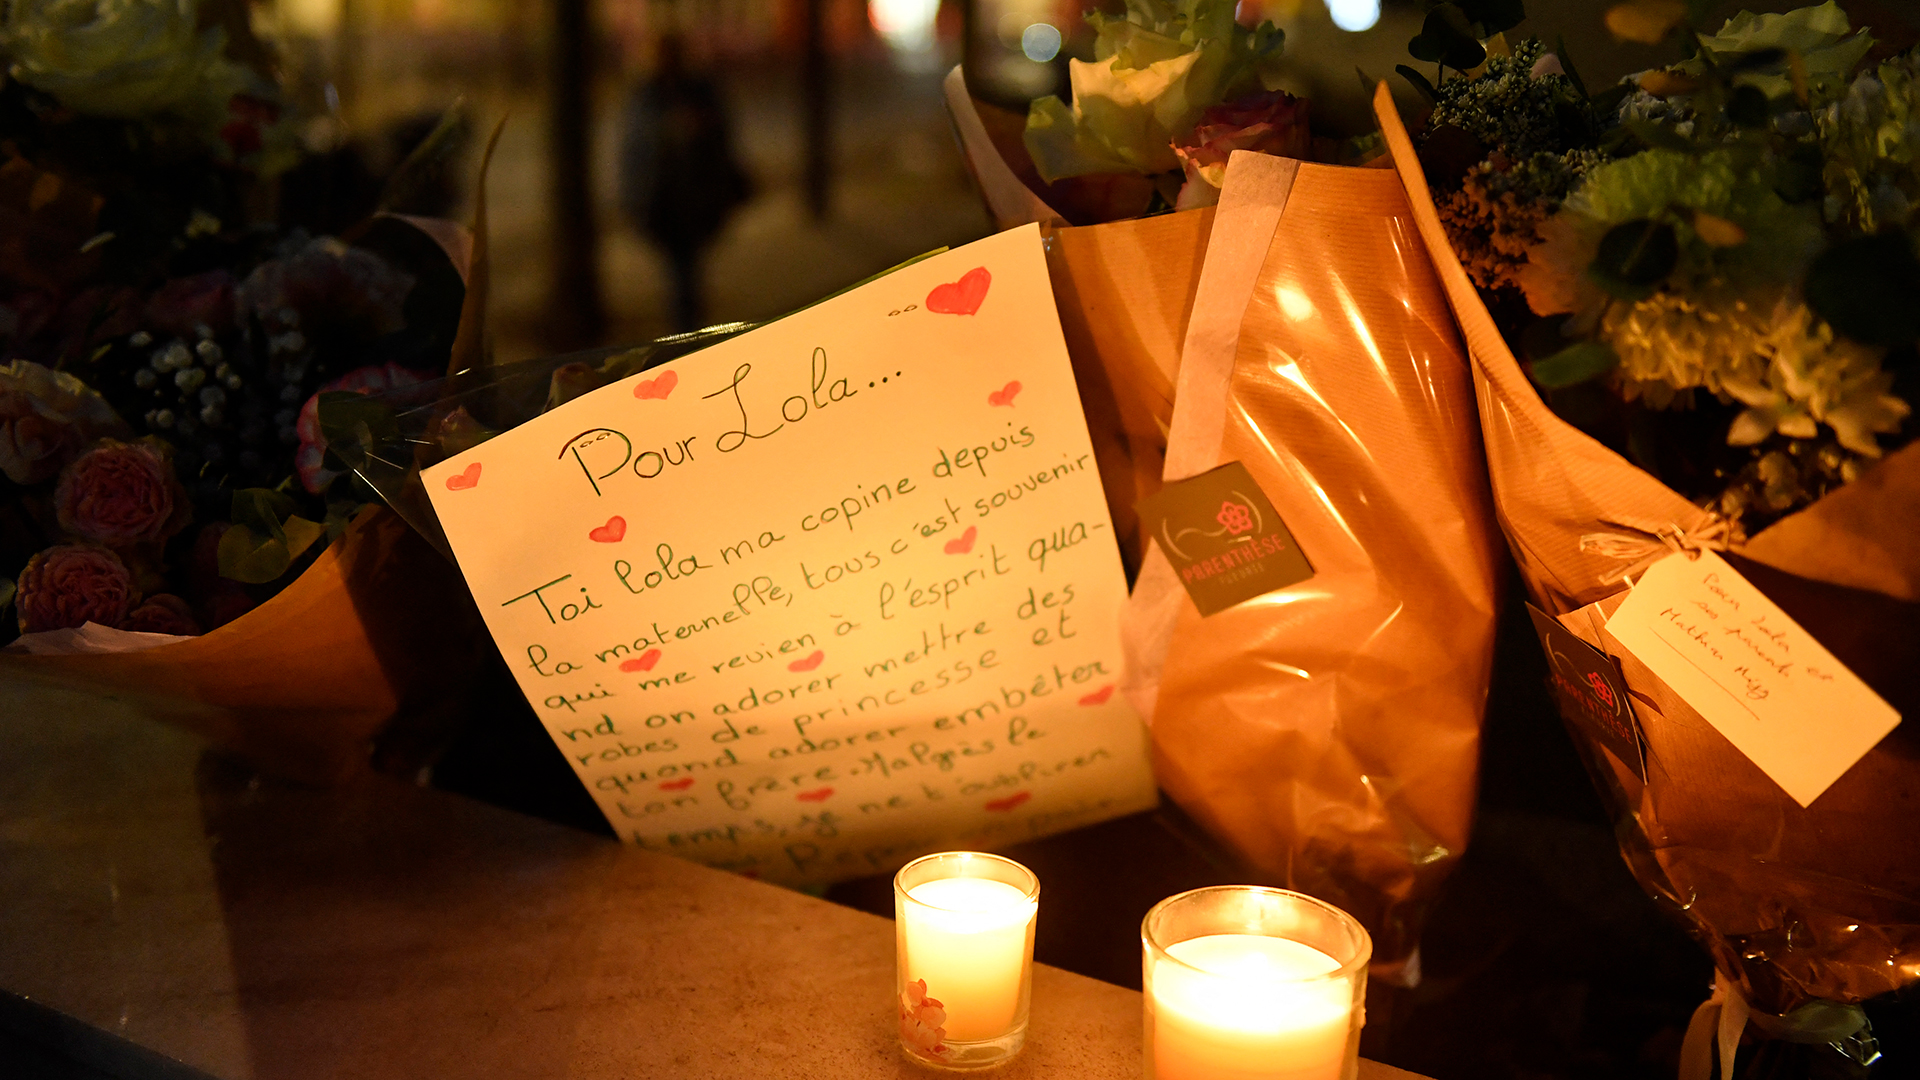 Pour Lola...
Toi lola ma copine depuis
la maternelle, tous c'est souvenir
qui me revien à l'ésprit qua-
nd on adorer mettre des
robes de princesse et
quand adorer embêter
ton frère. Malgrès le
temps, je ne t'oublirer
PARENTHÈSE
Pour Lola et
ses parents